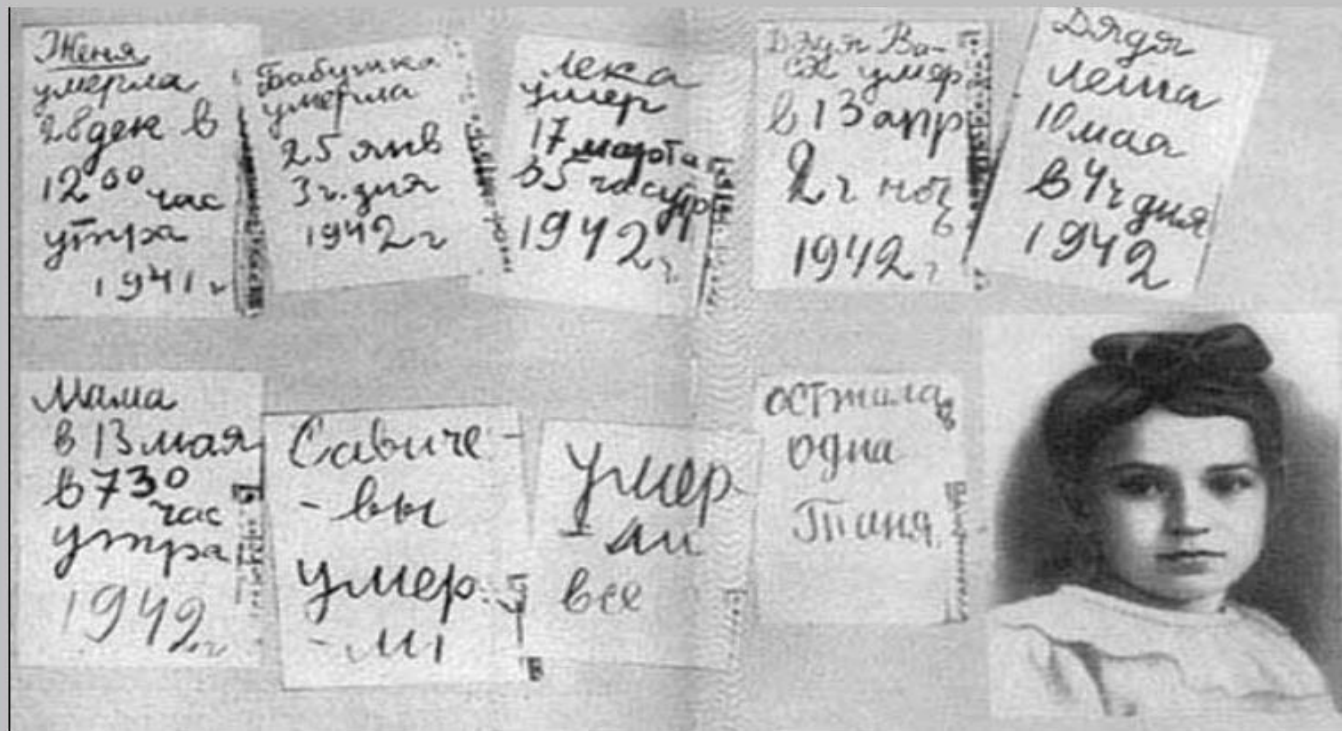 Женя
умерла
28 дек в
12 00 час
утра
1941 г
Бабушка
умерла
25 янв
3 ч. дня
1942 г
Лека
умер
17 марта
в 5 час утр
1942 г
Дядя Ва-
ся умер
в 13 апр
2 ч ночь
1942 г
Дядя
Леша
10 мая
в 4 ч дня
1942
Мама
в 13 мая
в 7 30
час
утра
1942 г
Савиче-
-вы
умер
-ли
Умер
-ли
все
осталась
одна
Таня.